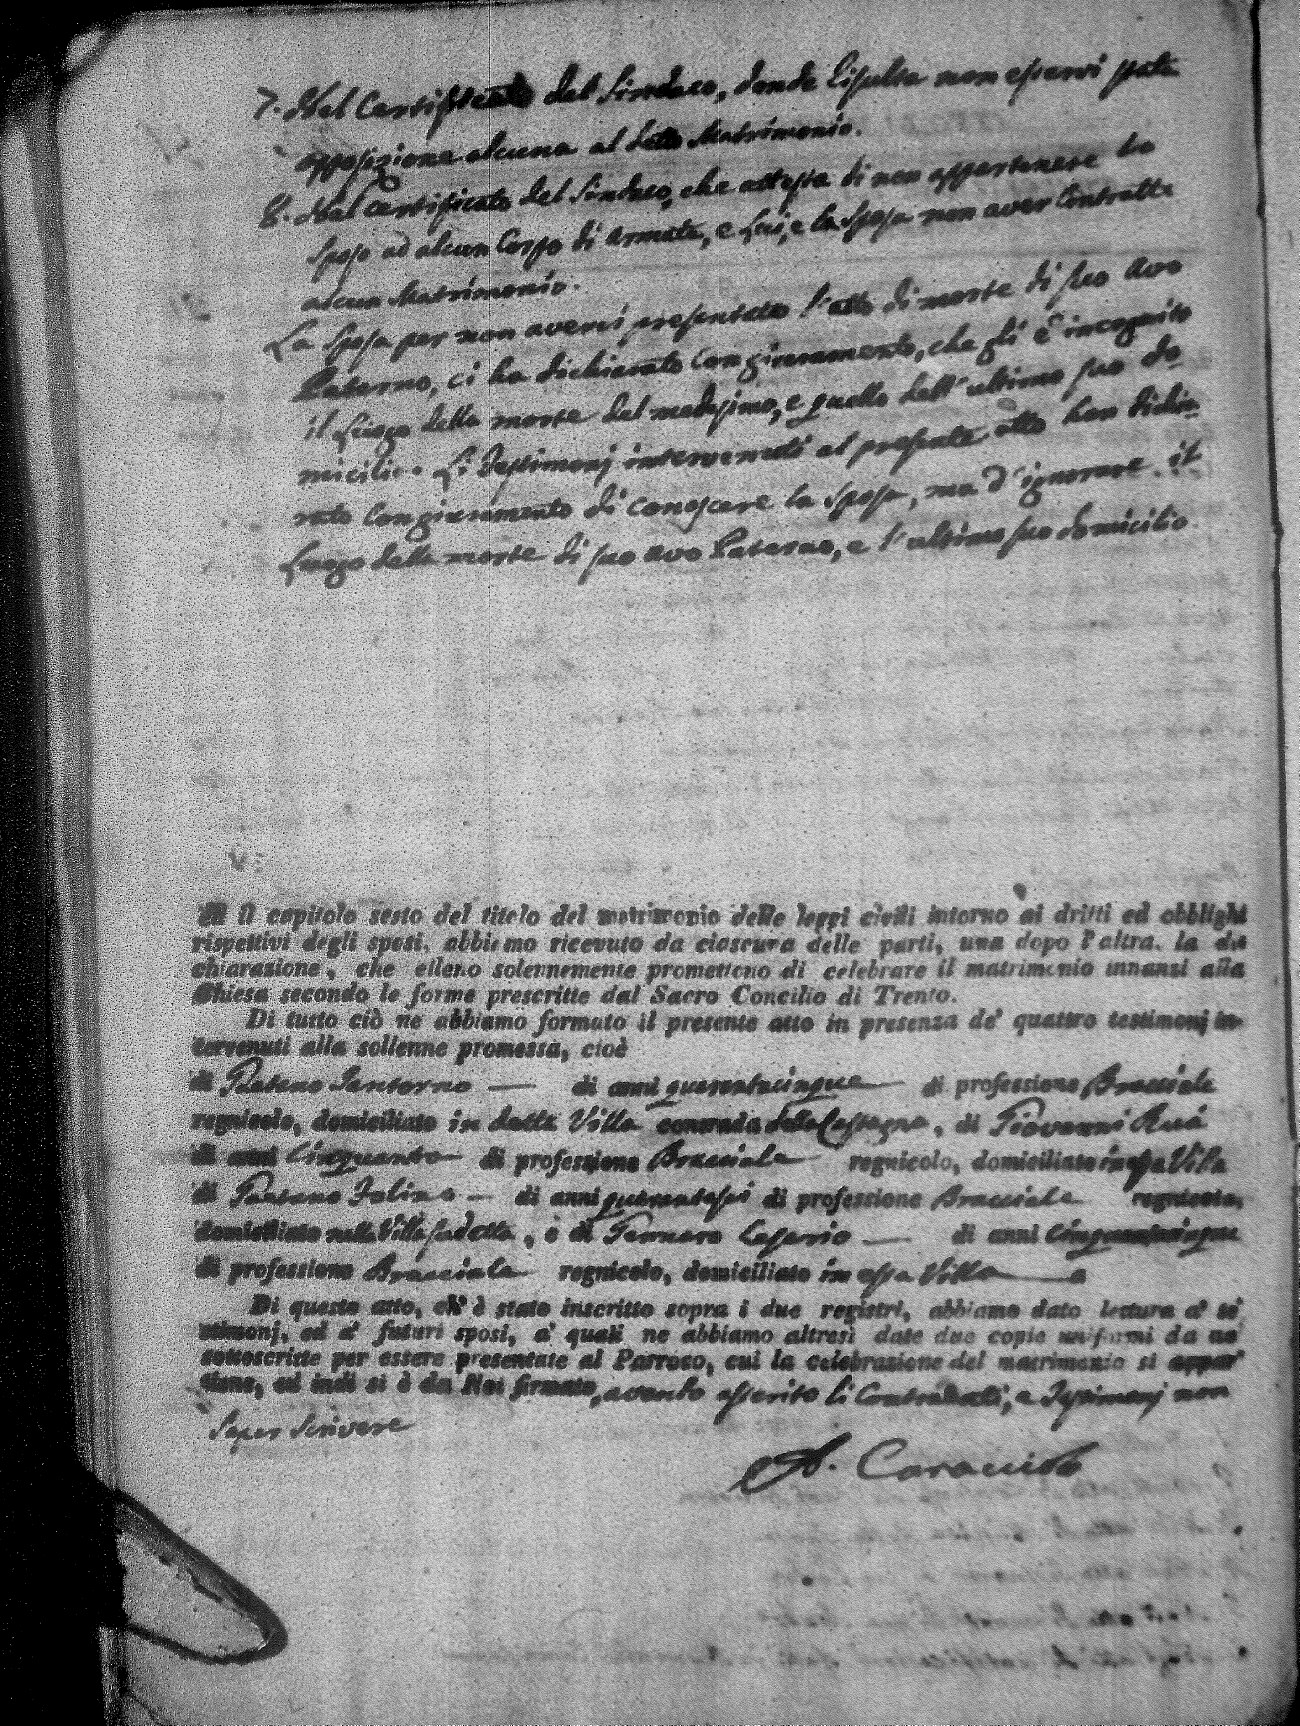 7. Nel Certificato del Sindaco, donde Risulta non esservi stata
opposizione alcuna al detto Matrimonio.
8. Nel certificato del Sindaco, che attesta di non appartenere lo
Sposo ad alcun Corpo di armata, e Lui, e la Sposa non aver Contratto
alcun Matrimonio.
La Sposa per non averci presentato l'atto di morte di suo Avo
Paterno, ci ha dichiarato con giuramento, che gli è incognito
il Luogo della morte del medesimo, e quello dell'ultimo suo do=
micilio. Li Testimonj intervenuti al presente atto han dichia=
rato con giuramento di conoscere la Sposa, ma d'ignorare il
Luogo della morte di suo avo Paterno, e l'ultimo suo domicilio
ed il capitolo sesto del titolo del matrimonio delle leggi civili intorno ai dritti ed obblighi
rispettivi degli sposi, abbiamo ricevuto da ciascuna delle parti, una dopo l'altra, la di-
chiarazione, che elleno solennemente promettono di celebrare il matrimonio innanzi alla
Chiesa secondo le forme prescritte dal Sacro Concilio di Trento.
Di tutto ciò ne abbiamo formato il presente atto in presenza de' quattro testimonj in-
tervenuti alla sollenne promessa, cioè
di Gaetano Santorno di anni quarantacinque di professione Bracciale
regnicolo, domiciliato in detta Villa contrada della Castagna, di Giovanni Ruà
di anni Cinquanta di professione Bracciale regnicolo, domiciliato in essa Villa
di Gaetano Irlino di anni quarantasei di professione Bracciale regnicolo,
domiciliato nella Villa sudetta, e di Gennaro Cesario di anni Cinquantacinque
di professione Bracciale regnicolo, domiciliato in essa Villa
Di questo atto, ch'è stato inscritto sopra i due registri, abbiamo dato lettura a' te-
stimonj, ed a' futuri sposi, a' quali ne abbiamo altresì date due copie uniformi da noi
sottoscritte per essere presentate al Parroco, cui la celebrazione del matrimonio si appar-
tiene, ed indi si è da Noi firmato, avendo asserito li Contraenti, e Testimonj non
Saper Scrivere
A. Caracciolo